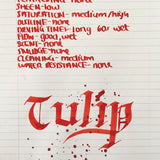 SHEEN-low
SATURATION-medium/high
OUTLINE-none
DRYING TIME- long 60s wet
FLOW-good, wet
SCENT-none
SMUDGE-none
CLEANING-medium
WATER RESISTANCE-none
Tulip